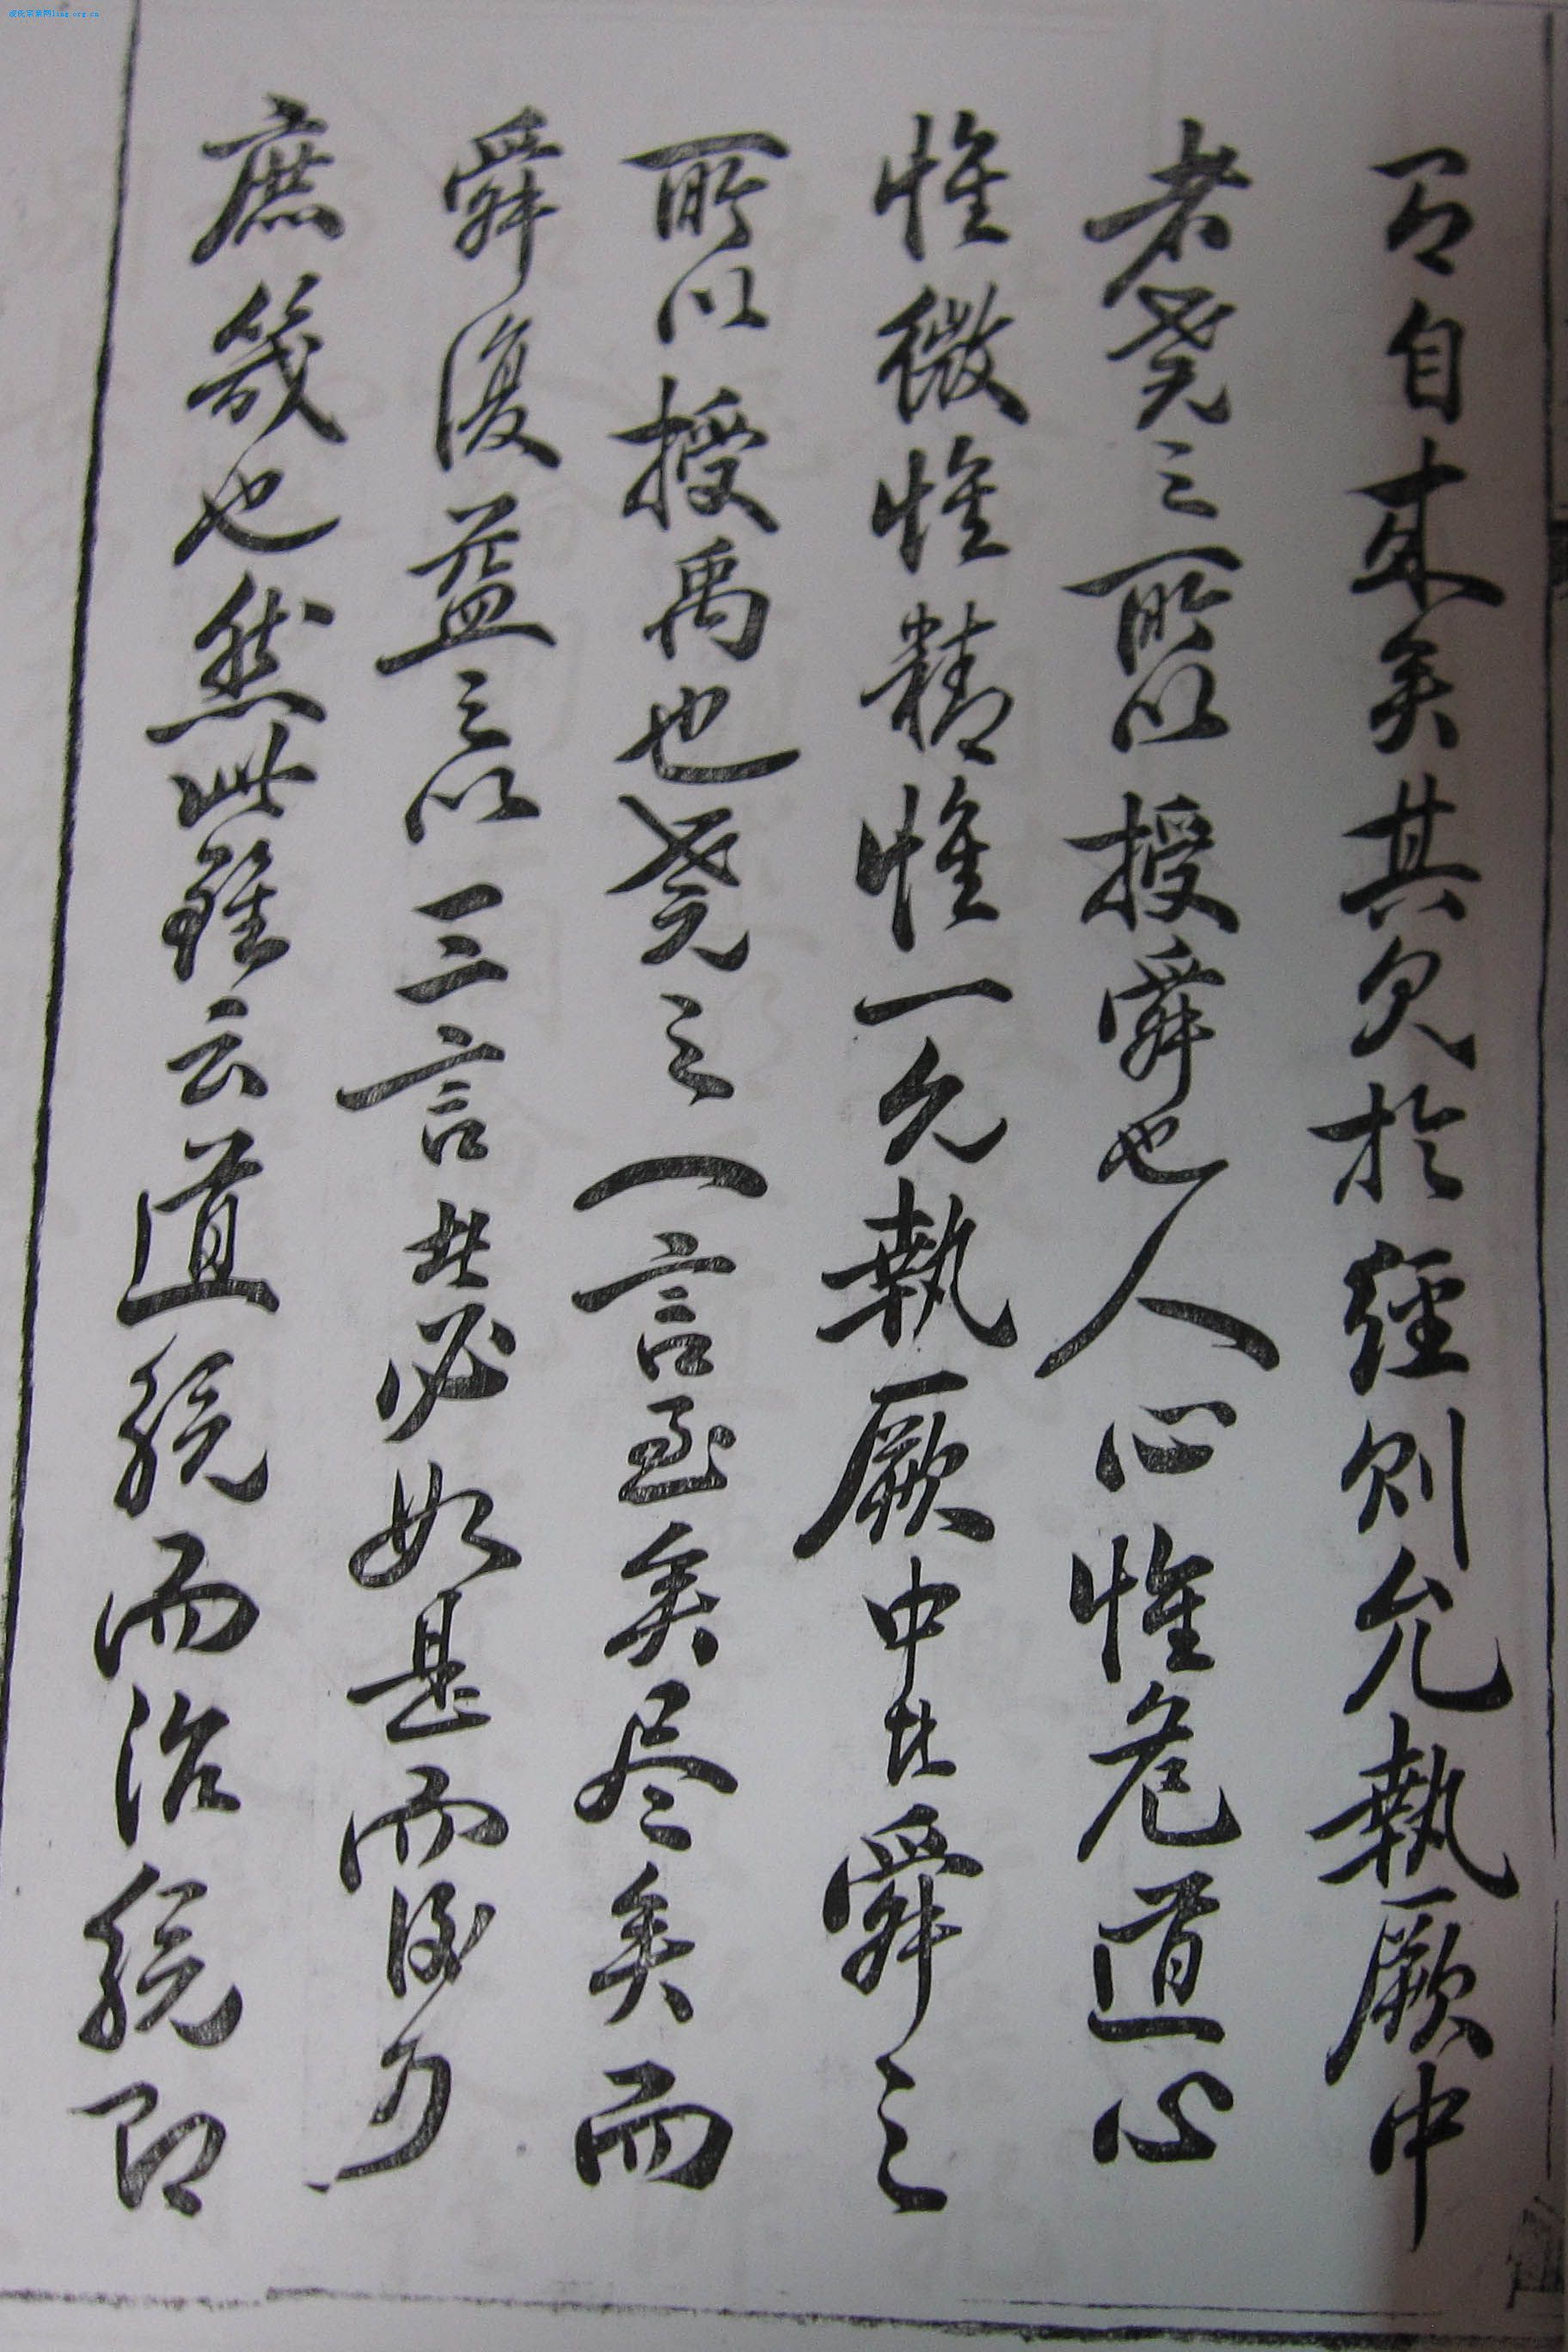 有自来矣其見於經則允執厥中
者堯之所以授舜也人心惟危道心
惟微惟精惟一允執厥中者舜之
所以授禹也堯之一言至矣尽矣而
舜復益之以三言者必如是而後可
庶幾也然此雖云道統而治統即